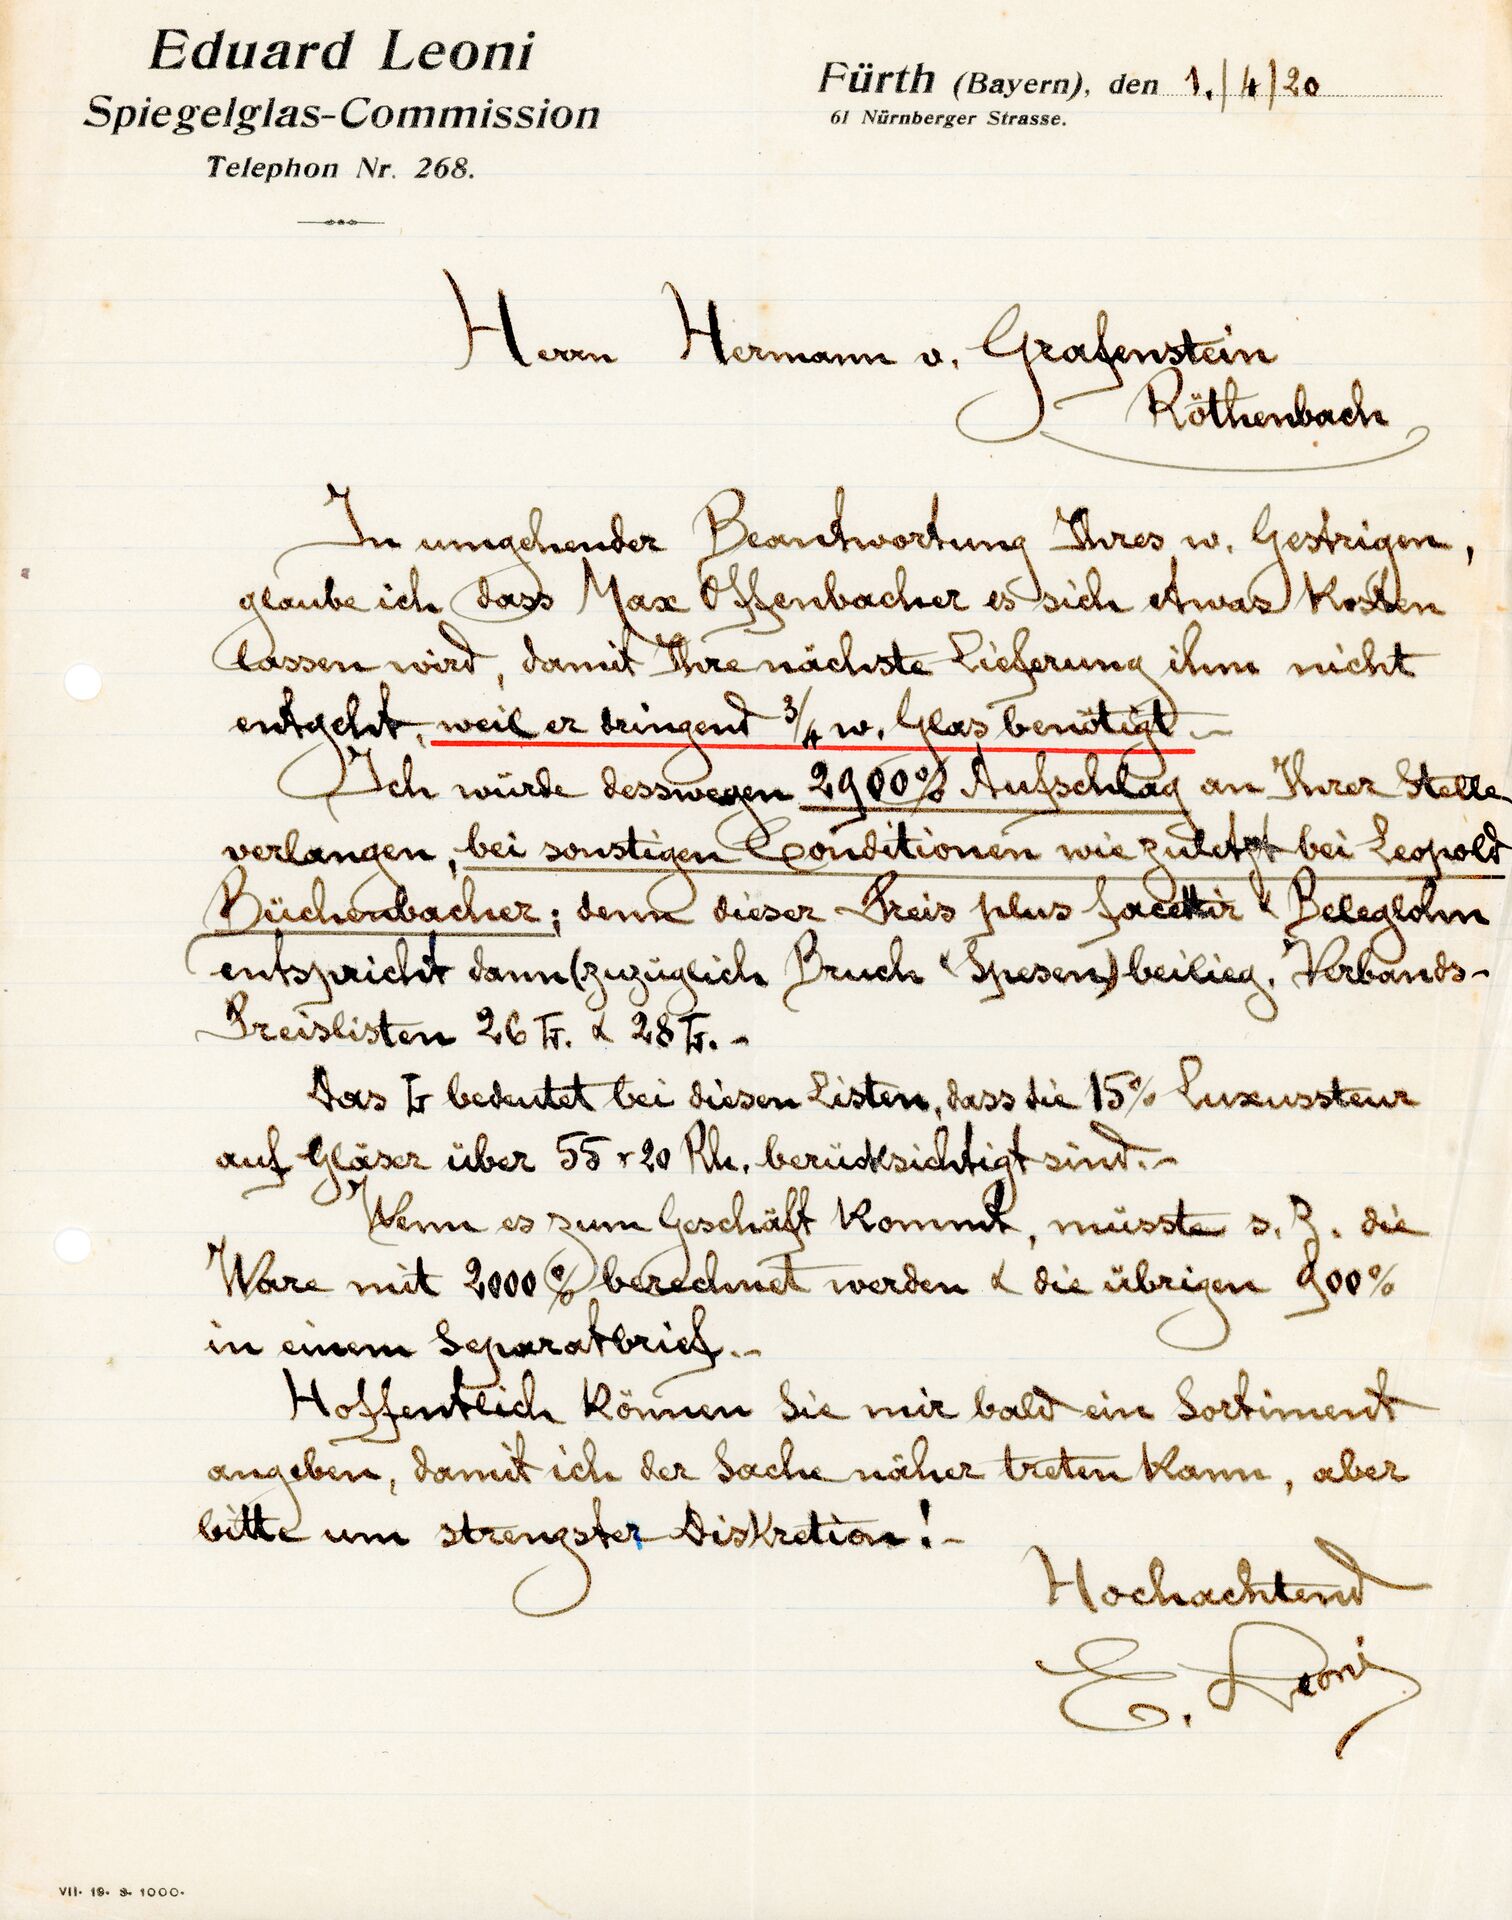 Eduard Leoni
Spiegelglas-Commission
Telephon Nr. 268.
Fürth (Bayern), den 1./4/20
61 Nürnberger Strasse.
Herrn Hermann v. Grafenstein
Röthenbach
In umgehender Beantwortung Ihres w. Gestrigen,
glaube ich dass Max Offenbacher es sich etwas kosten
lassen wird, damit Ihre nächste Lieferung ihm nicht
entgeht, weil er dringend 3/4 w. Glas benötigt.-
Ich würde desswegen 2900% Aufschlag an Ihrer Stelle
verlangen, bei sonstigen Conditionen wie zuletzt bei Leopold
Büchenbacher; denn dieser Preis plus facettir & Beleglohn
entspricht dann (zuzüglich Bruch & Spesen) beilieg. Verbands-
Preislisten 26 & 28
Das bedeutet bei diesen Listen, dass die 15% Luxussteur
auf Gläser über 55 r 20 Rh. berücksichtigt sind.-
Wenn es zum Geschäft kommt, müsste s. Z. die
Ware mit 2000% berechnet werden & die übrigen 900%
in einem Separatbrief.-
Hoffentlich können Sie mir bald ein Sortiment
angeben, damit ich der Sache näher treten kann, aber
bitte um strengster Diskretion!-
Hochachtend
E. Leoni
VII. 19. 1000.